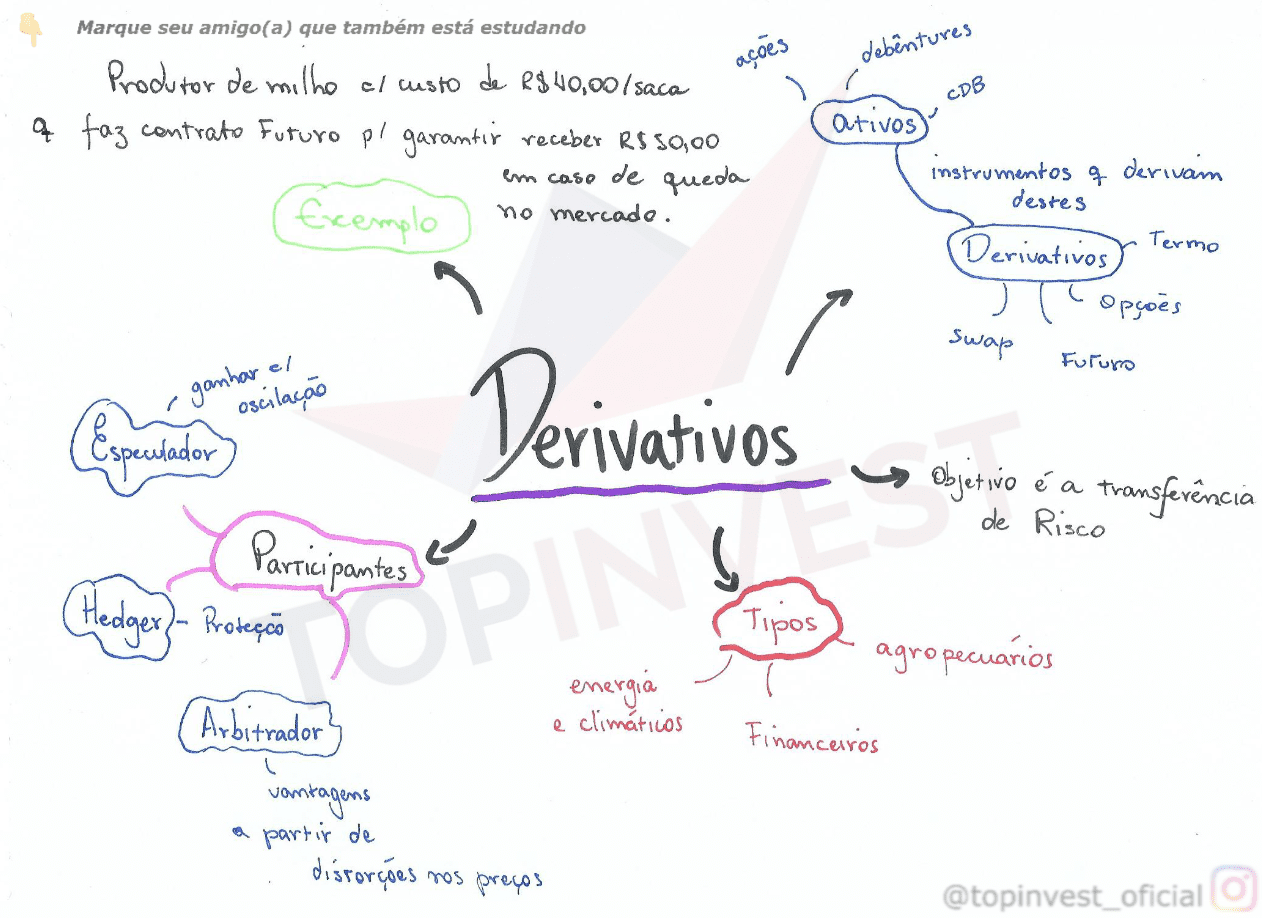 Marque seu amigo(a) que também está estudando
Produtor de milho c/ custo de R$40,00/saca
q faz contrato Futuro p/ garantir receber R$50,00
em caso de queda
no mercado.
Exemplo
ações
debêntures
CDB
ativos
instrumentos q derivam
destes
Derivativos
Termo
Opções
Swap
Futuro
Derivativos
ganhar c/
oscilação
Especulador
Objetivo é a transferência
de Risco
Participantes
Hedger - Proteção
Arbitrador
vantagens
a partir de
distorções nos preços
Tipos
agropecuários
energia
e climáticos
Financeiros
TOPINVEST
@topinvest_oficial